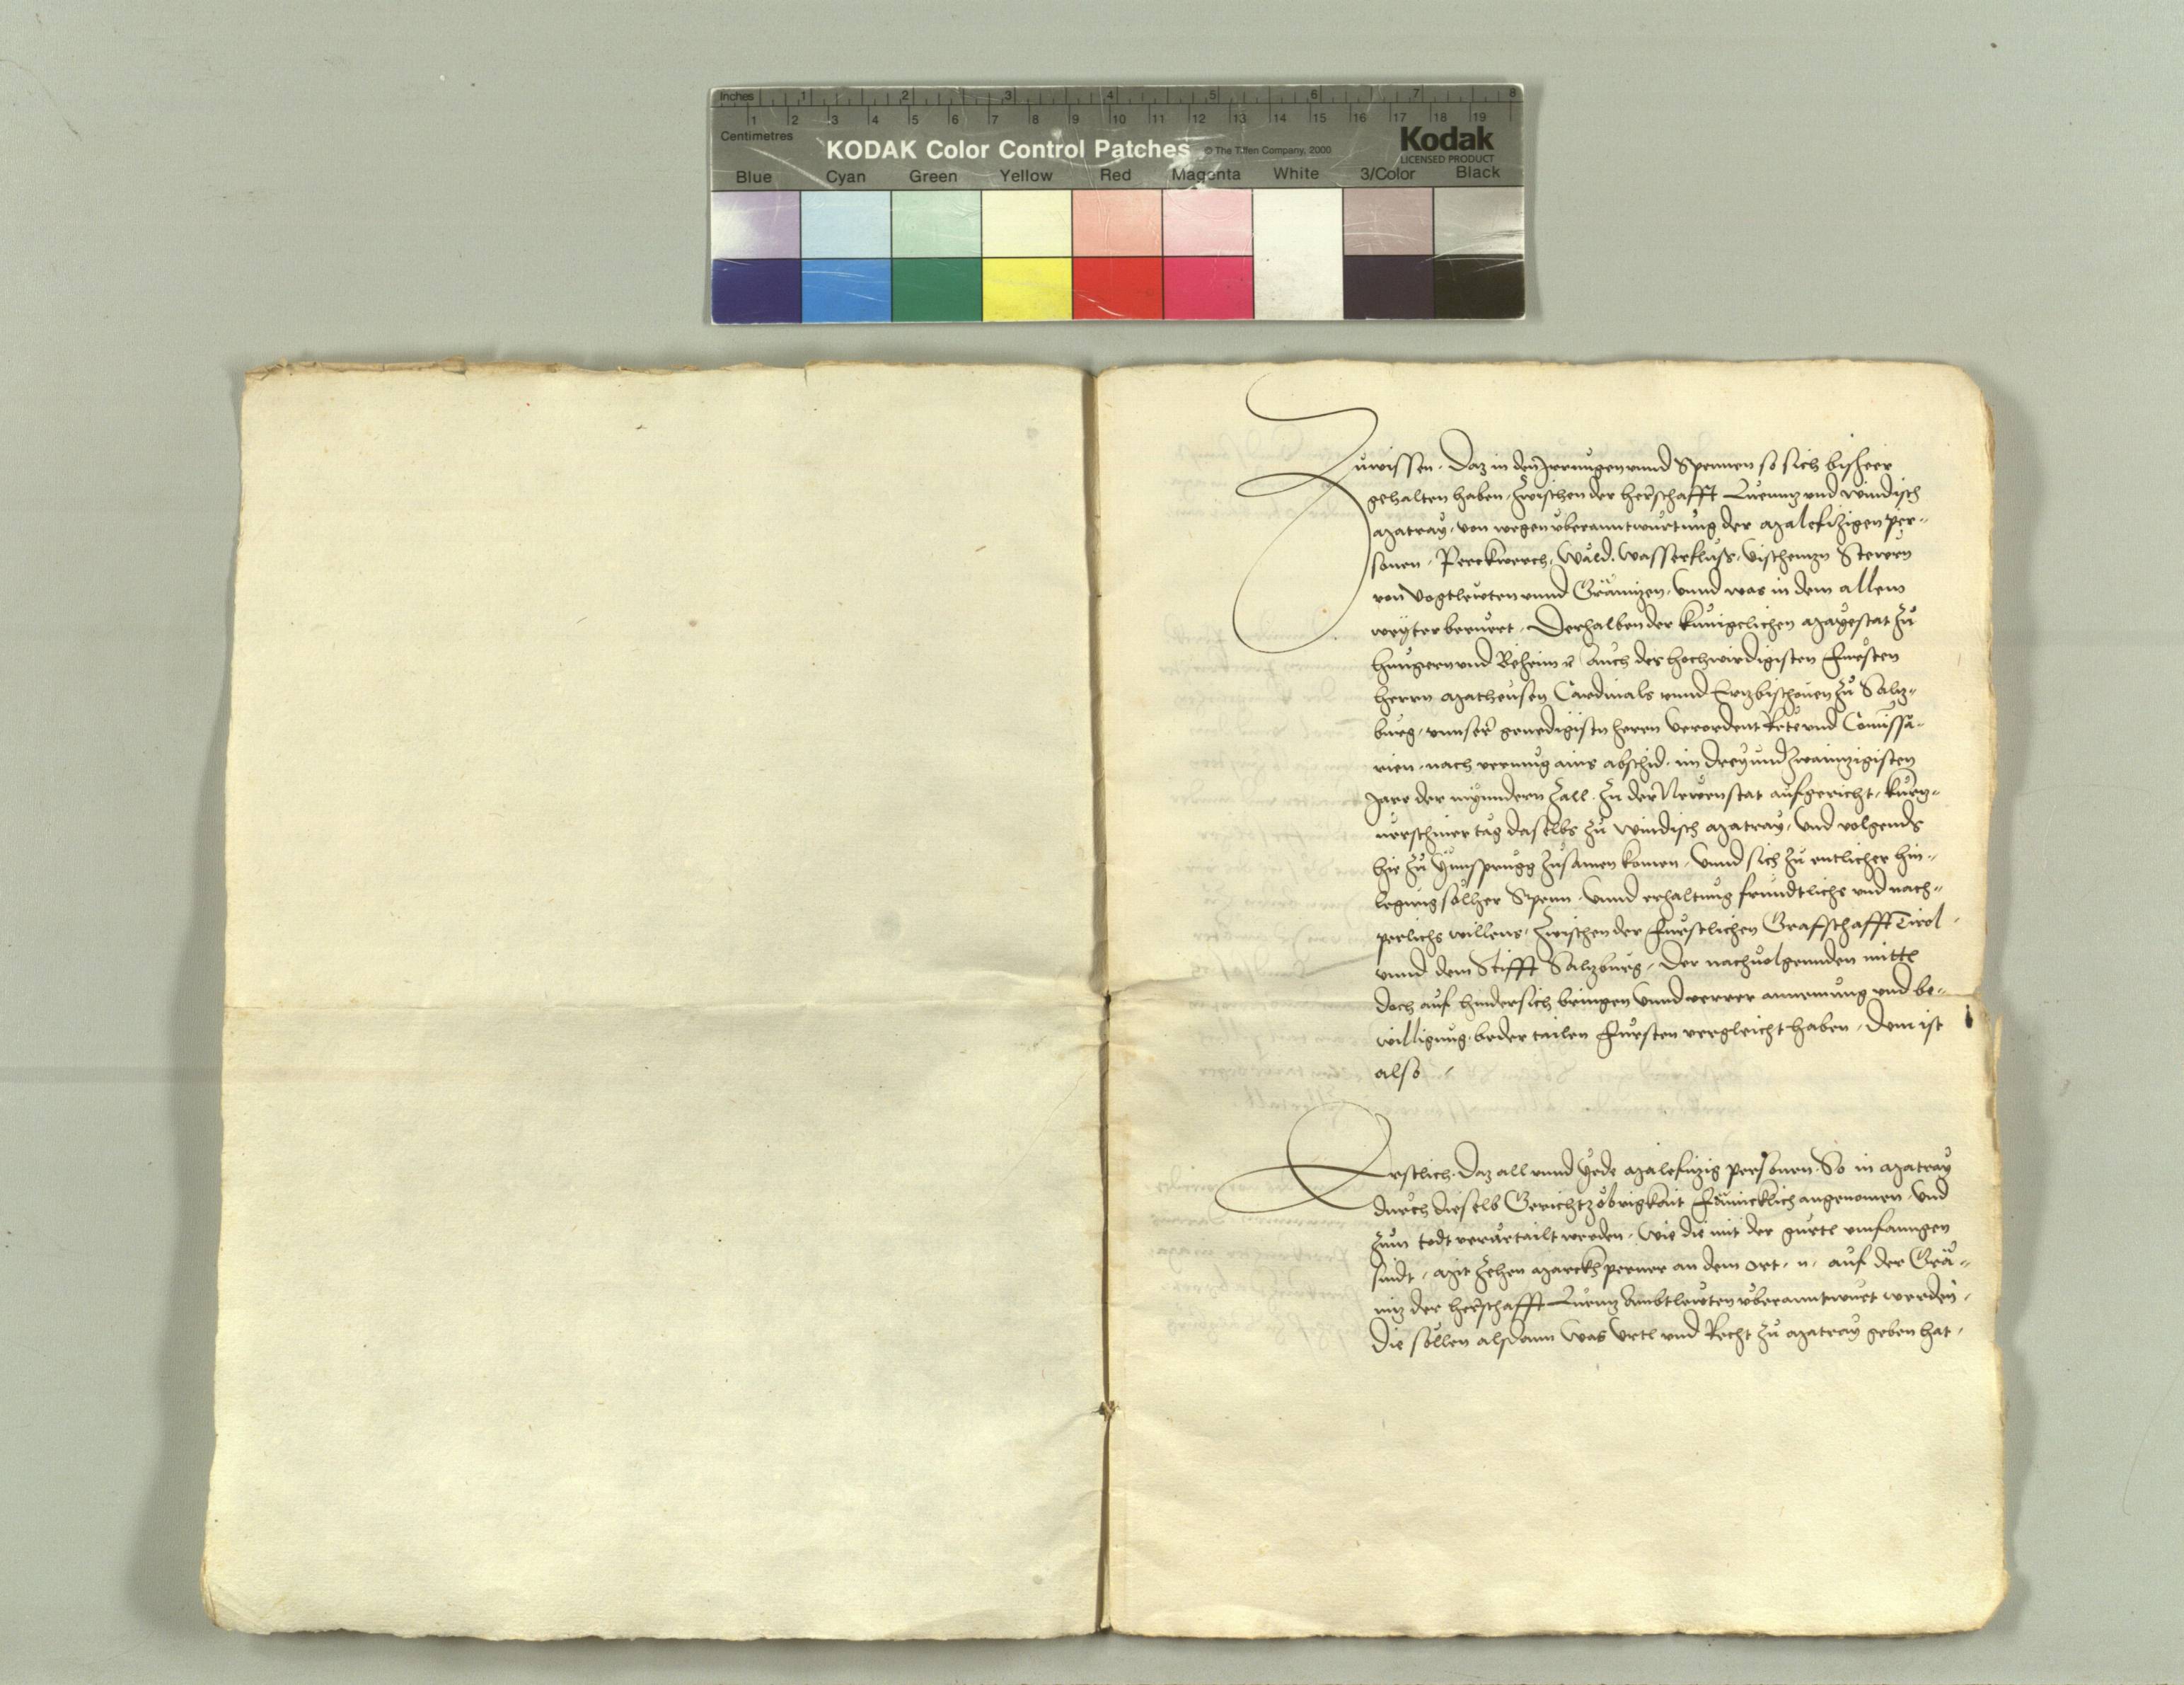 Inches 1 2 3 4 5 6 7 8
1 2 3 4 5 6 7 8 9 10 11 12 13 14 15 16 17 18 19
Centimetres
KODAK Color Control Patches © The Tiffen Company, 2000
Kodak
LICENSED PRODUCT
Blue Cyan Green Yellow Red Magenta White 3/Color Black
Zuwissen. Daz in den Irrungen unnd Spennen so sich bisheer
gehalten haben, zwischen der herschafft Lüenntz und windisch
Matray, von wegen überanntwurtung der Malefitzigen per-
sonen, Perckwerch, Wäld, Wasserfluss, Vischentzn Stewrn
von Vogtlewten unnd Gränitzen, unnd was in dem allem
weyter berüert, Derhalben der kunigclichen Mayestat zu
hungern und Beheim etc. Auch des hochwirdigisten Fürsten
herrn Matheusen Cardinals unnd Ertzbischouen zu Saltz-
burg, unnser genedigistn herrn verordent Rete und Comissa-
rien, nach vermug ains abschid, im dreyundzwaintzigisten
Jare der myndern zall, zu der Newenstat aufgericht, kurtz-
uerschiner tag daselbs zu windisch Matray, und volgends
hie zu Ynnsprugg zusamen komen, unnd sich zu entlicher hin-
legung sölher Spenn, unnd erhaltung freundtlichs und nach-
perlichs willens, zwischen der Fürstlichen Grafschafft Tirol,
unnd dem Stifft Saltzburg, der nachuolgennden mittl
doch auf hindersich bringen unnd verrer annemung und be-
willigung, beder tailen Fürsten vergleicht haben, dem ist
also
Erstlich. Daz all unnd yede Malefitzig personen. So in Matray
durch dieselb Gerichtzobrigkait Fäncklich angenomen, und
zum todt verurtailt werden, wie die mit der gurtl umfanngen
sindt, Mit zehen Marckh perner an dem ort, n, auf der Grä-
nitz der herschafft Lüentz Ambtlewten überanntwurt werden,
die söllen alsdann was Urtl und Recht zu Matray geben hat,